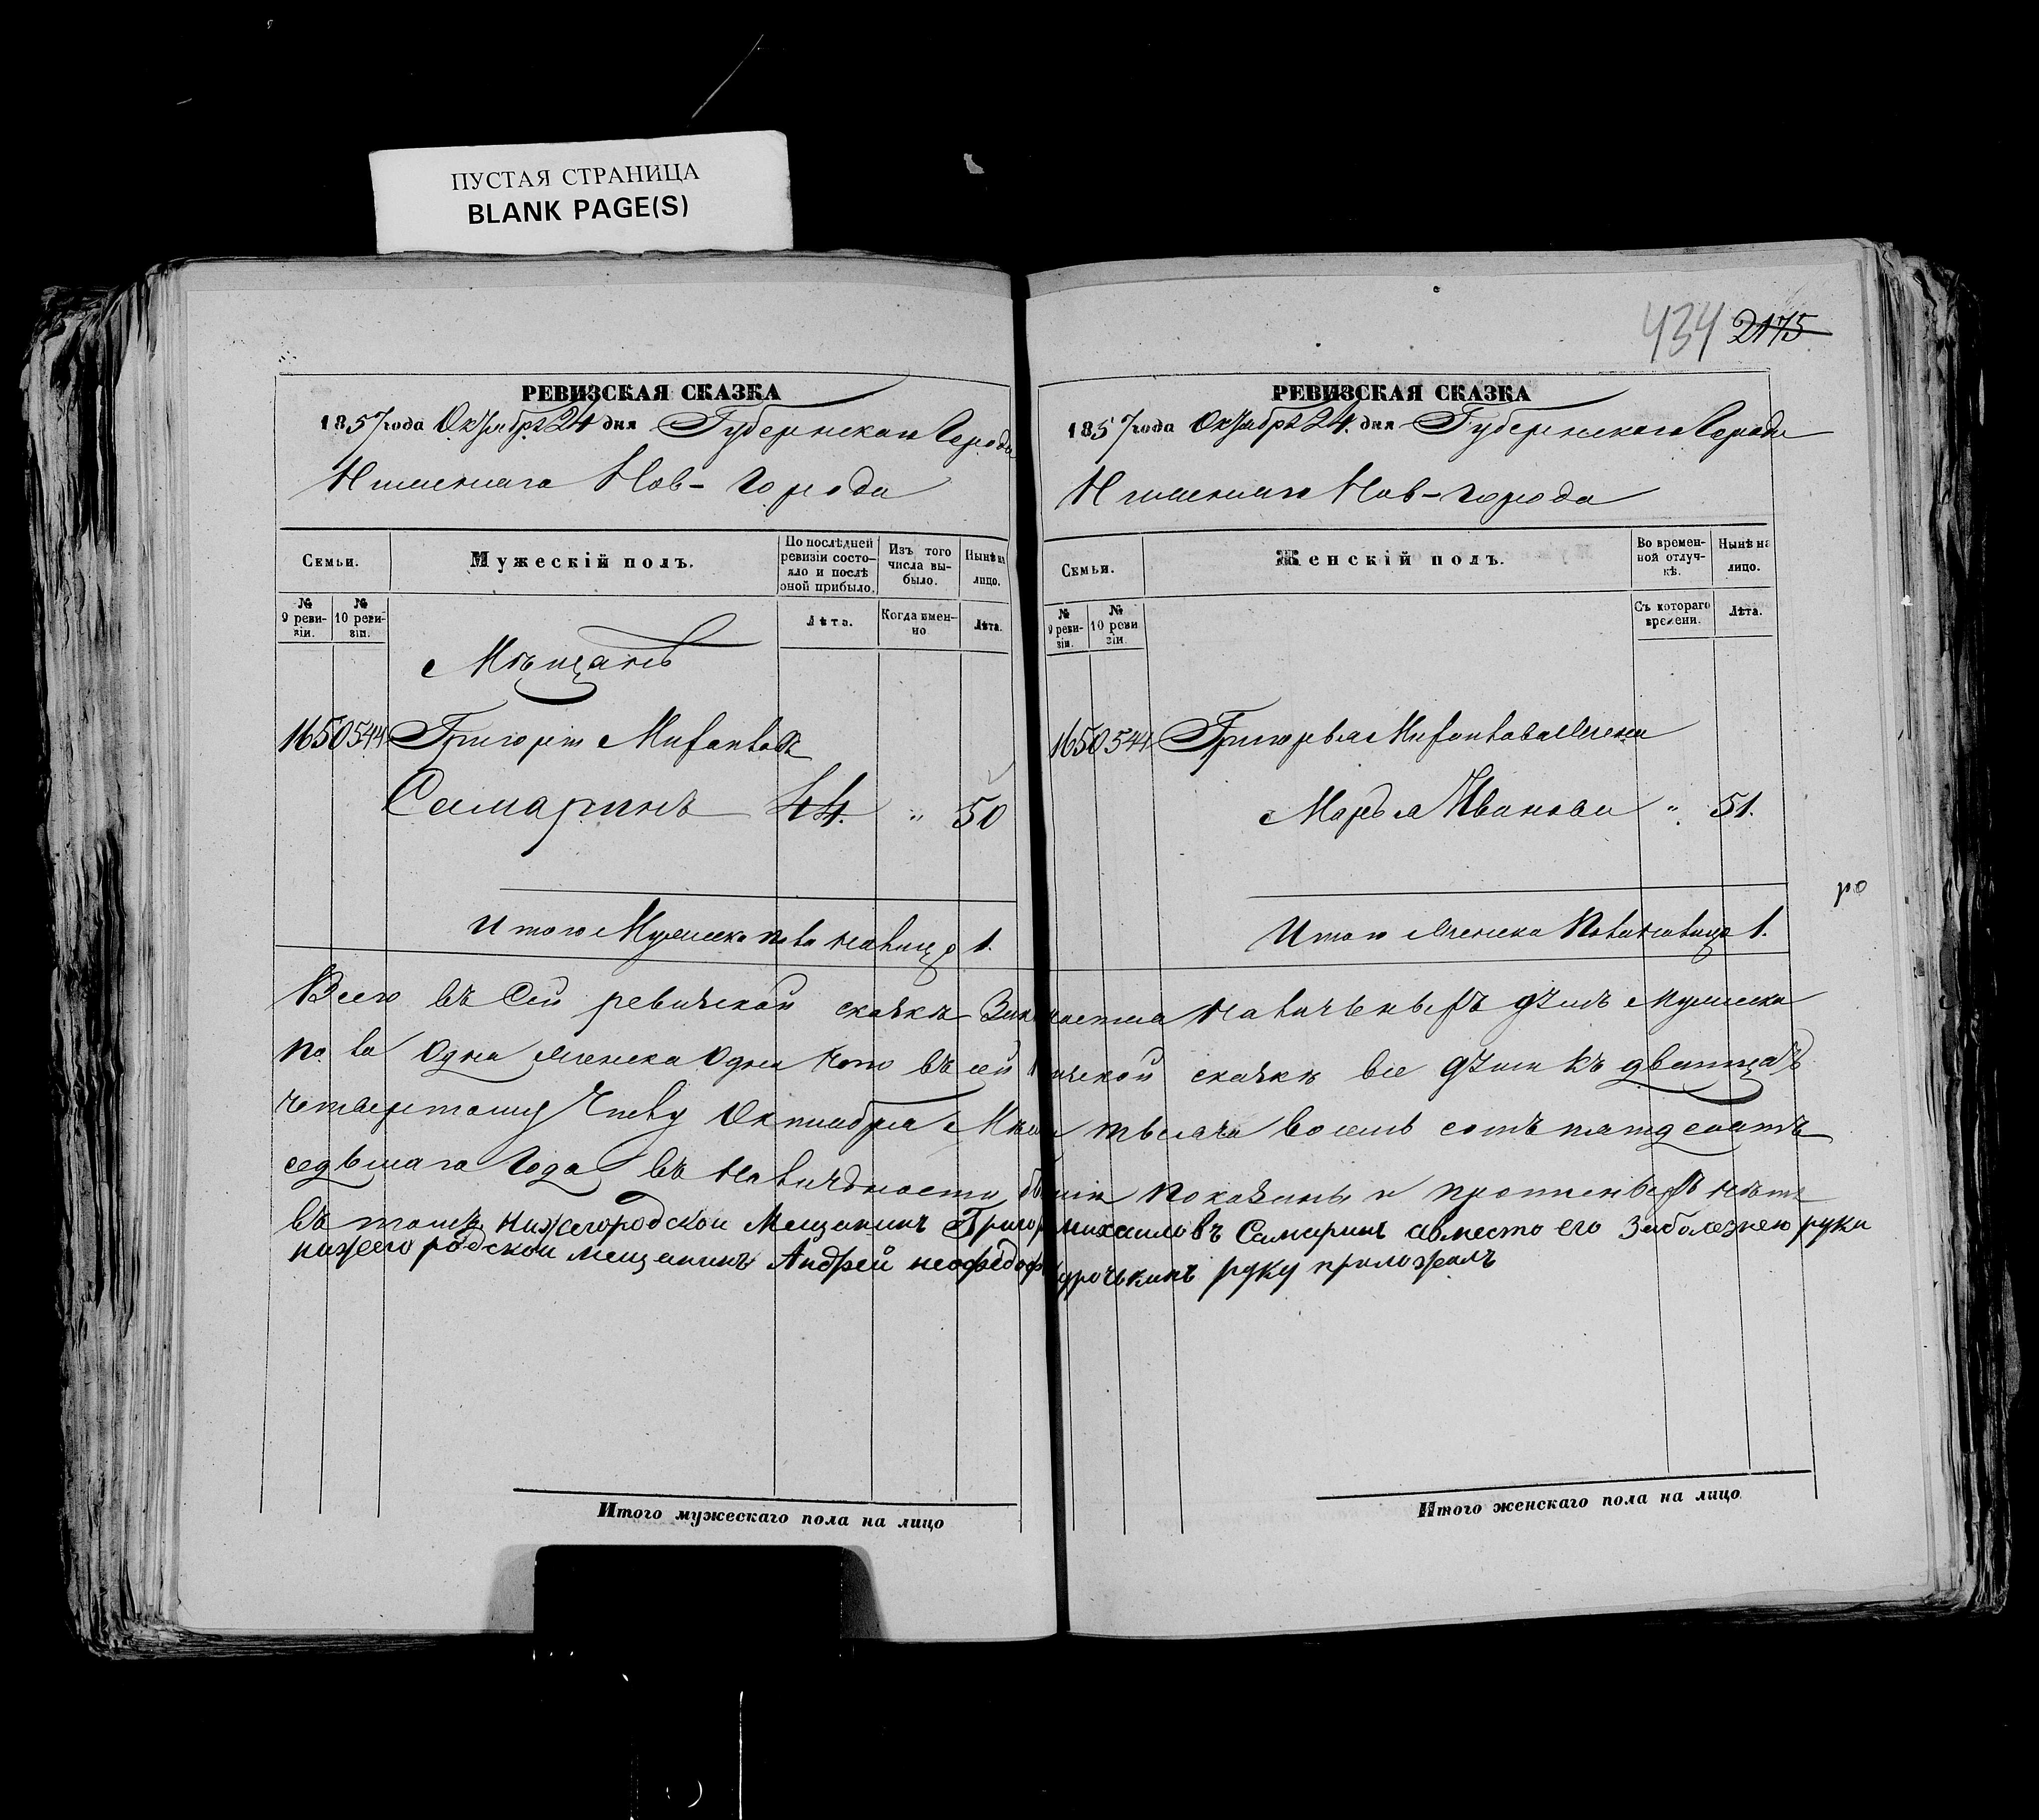 ПУСТАЯ СТРАНИЦА
BLANK PAGE(S)
434 2175
РЕВИЗСКАЯ СКАЗКА
1857 года Октябрѣ 24 дня Губернскаго Города
Нижняго Нов-города
Семьи.
Мужескій полъ.
По послѣдней ревизіи состояло и послѣ оной прибыло.
Изъ того числа выбыло.
Нынѣ на лицо.
№ 9 ревизіи.
№ 10 ревизіи.
Лѣта.
Когда именно
Лѣта.
Мѣщанъ
1650 544 Григорій Михайловъ
Самаринъ 44. " 50
Итого Мужеска пола налицо 1.
РЕВИЗСКАЯ СКАЗКА
1857 года Октябрѣ 24 дня Губернскаго Города
Нижняго Нов-города
Семьи.
Женскій полъ.
Во временной отлучкѣ.
Нынѣ на лицо.
№ 9 ревизіи.
№ 10 ревизіи.
Съ котораго времени.
Лѣта.
1650 544 Григорья Михайлова жена
Марья Иванова " 51.
ро
Итого женска пола налицо 1.
Всего въ Сей ревизской сказкѣ наличныхъ душъ Мужеска
пола Одна женска Одна что въ сей сказкѣ все души къ дватцать
четвертому Числу Октября тысяча восемь сотъ пятдесятъ
седьмаго Года въ наличности показаны и прописныхъ нѣтъ
въ томъ нижегородской Мещанинъ Григор михаиловъ Самаринъ авместо его Заболезнею руки
нижегородскои мещанинъ Андрей руку приложилъ
Итого мужескаго пола на лицо
Итого женскаго пола на лицо